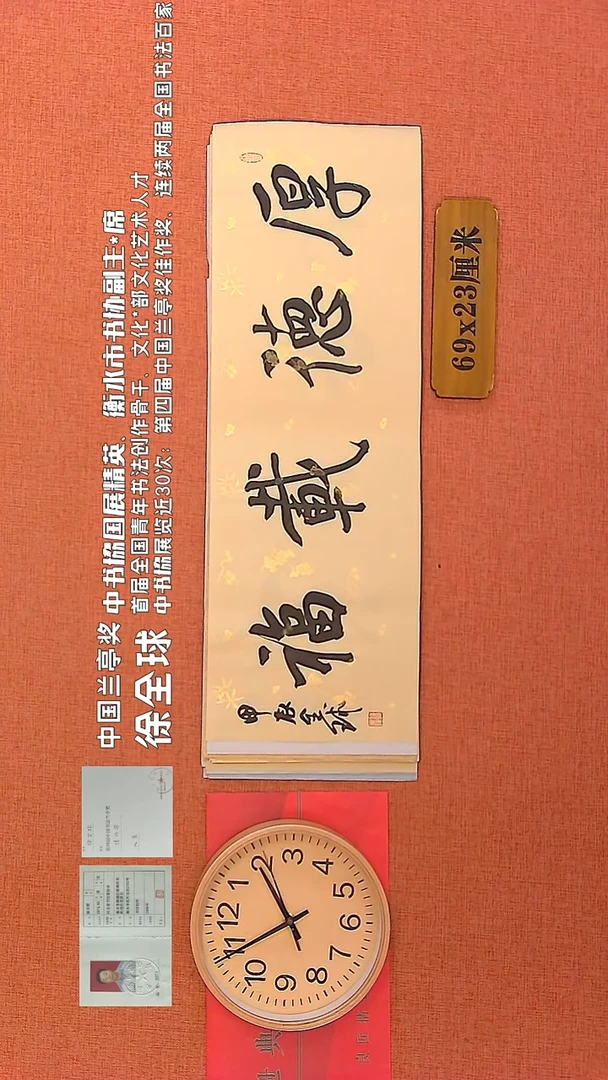 中国兰亭奖 中书協国展精英、衡水市书协副主*席
徐全球
首届全国青年书法创作骨干、文化*部文化艺术人才
中书協展览近30次；第四届中国兰亭奖佳作奖、连续两届全国书法百家
厚德載福
甲辰全球
69x23厘米
12
1
2
3
4
5
6
7
8
9
10
11